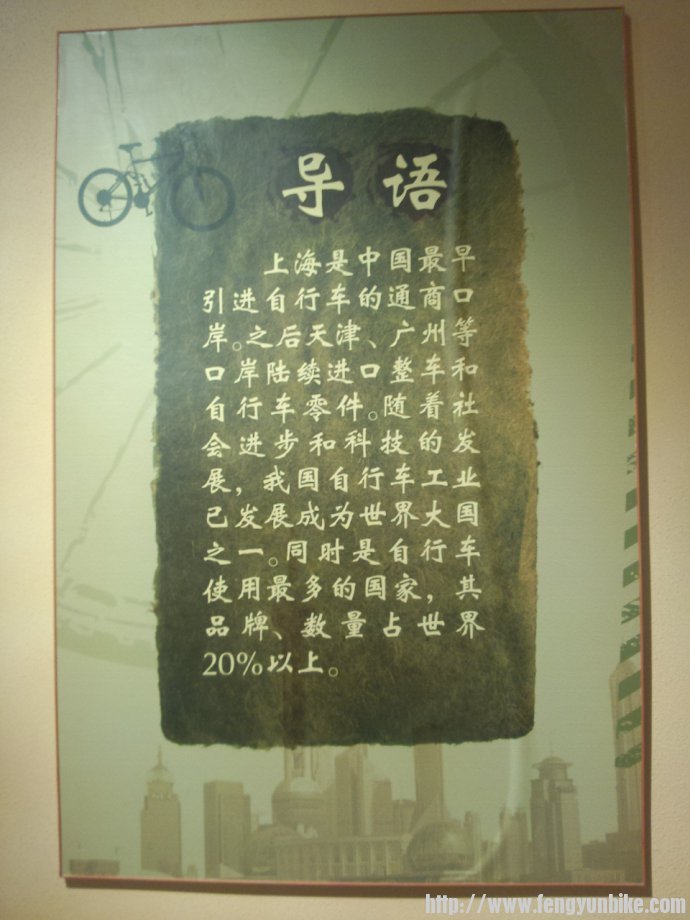 导语
上海是中国最早
引进自行车的通商口
岸。之后天津、广州等
口岸陆续进口整车和
自行车零件。随着社
会进步和科技的发
展，我国自行车工业
已发展成为世界大国
之一。同时是自行车
使用最多的国家，其
品牌、数量占世界
20%以上。
http://www.fengyunbike.com